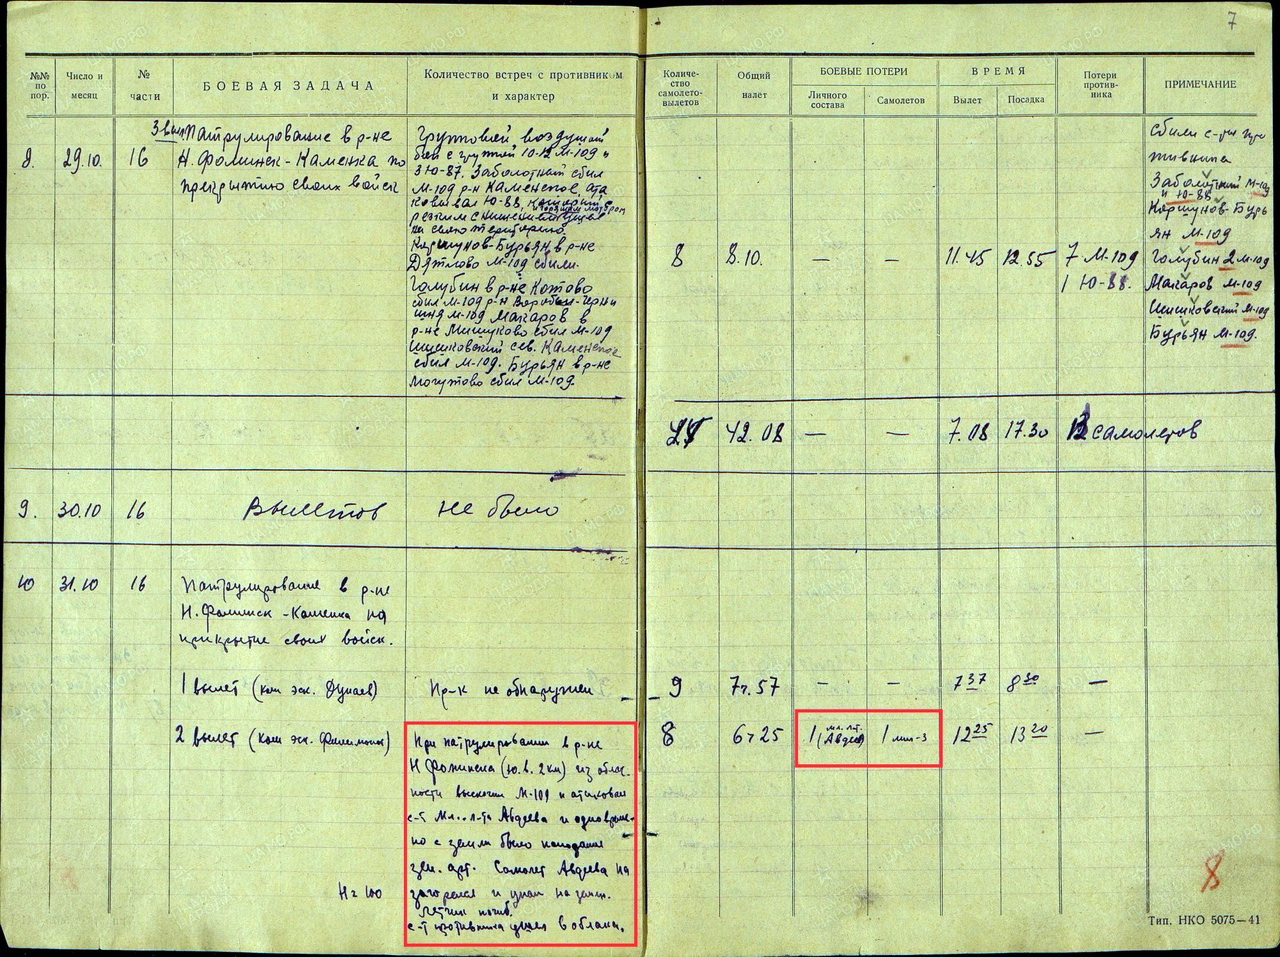 7
№№ по пор.
Число и месяц
№ части
БОЕВАЯ ЗАДАЧА
Количество встреч с противником и характер
Количе-
ство
самолето-
вылетов
Общий
налет
БОЕВЫЕ ПОТЕРИ
Личного
состава
Самолетов
ВРЕМЯ
Вылет
Посадка
Потери
против-
ника
ПРИМЕЧАНИЕ
8
29.10.
16
3 выл.
Патрулирование в р-не
Н. Фоминск - Каменка по
прекрытию своих войск
Групповой, воздушный
бой с группой 10-12 М-109 и
3 Ю-87. Заболотный сбил
М-109 р-н Каменское, ата
ковывал Ю-88, который с
резким снижением
на свою територию.
Коршунов-Бурьян в р-не
Дятлово М-109 сбили.
Голубин в р-не Котово
сбил М-109 р-н
М-109 Макаров в
р-не Мишуково сбил М-109
Шишковский сев. Каменское
сбил М-109. Бурьян в р-не
Могутово сбил М-109.
8
8.10.
—
—
11.45
12.55
7 М-109
1 Ю-88.
Сбили с-ты про
тивника
Заболотный М-109
и Ю-88
Коршунов-Бурь
ян М-109
Голубин 2 М-109
Макаров М-109
Шишковский М-109
Бурьян М-109.
42.08
—
—
7.08
17.30
самолетов
9.
30.10
16
Вылетов
не было
10
31.10
16
Патрулирование в р-не
Н. Фоминск - Каменка на
прикрытие своих войск.
1 вылет (ком эск. Дунаев)
Пр-к не обнаружен
9
7ч.57
–
–
7 37
8 30
—
2 вылет (ком эск. Филимонов)
8
6ч25
1 (мл. л-т. Авдеев)
1 миг-3
12 25
13 20
—
При патрулировании в р-не
Н Фоминска (ю.в. 2км) из облач-
ности выскочил М-109 и атаковал
с-т Мл. л-та Авдеева и одновремен-
но с земли было попадание
зен. арт. Самолет Авдеева
загорелся и упал на землю.
Летчик погиб.
с-т противника ушел в облака.
Н=100
8
Тип. НКО 5075—41